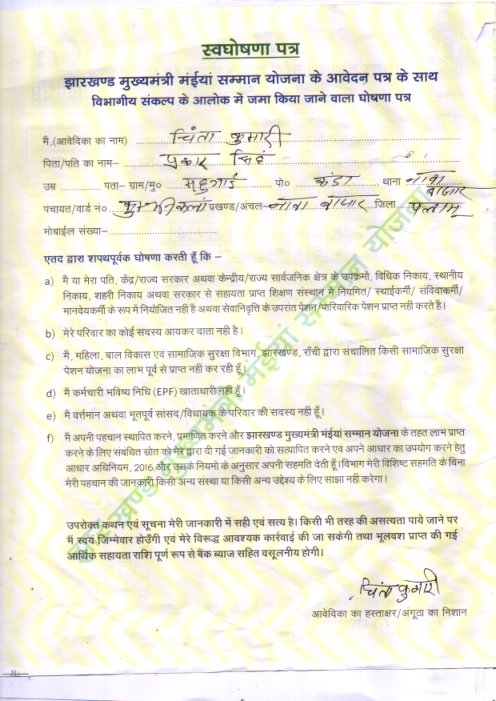 स्वघोषणा पत्र
झारखण्ड मुख्यमंत्री मंईयां सम्मान योजना के आवेदन पत्र के साथ
विभागीय संकल्प के आलोक में जमा किया जाने वाला घोषणा पत्र
मैं,(आवेदिका का नाम) चिंता कुमारी
पिता/पति का नाम– प्रकाश सिंह
उम्र ............ पता– ग्राम/मु० ............ पो० कंडा थाना नावा बाजार
पंचायत/वार्ड नं० ............ प्रखण्ड/अंचल– नावा बाजार जिला पलामू
मोबाईल संख्या–
एतद द्वारा शपथपूर्वक घोषणा करती हूँ कि –
a) मैं या मेरा पति, केंद्र/राज्य सरकार अथवा केन्द्रीय/राज्य सार्वजनिक क्षेत्र के उपक्रमों, विधिक निकाय, स्थानीय
निकाय, शहरी निकाय अथवा सरकार से सहायता प्राप्त शिक्षण संस्थान में नियमित/ स्थाईकर्मी/ संविदाकर्मी/
मानदेयकर्मी के रूप में नियोजित नहीं है अथवा सेवानिवृति के उपरांत पेंशन/पारिवारिक पेंशन प्राप्त नही करते है।
b) मेरे परिवार का कोई सदस्य आयकर दाता नहीं है।
c) मैं, महिला, बाल विकास एवं सामाजिक सुरक्षा विभाग, झारखण्ड, राँची द्वारा संचालित किसी सामाजिक सुरक्षा
पेंशन योजना का लाभ पूर्व से प्राप्त नहीं कर रही हूँ।
d) मैं कर्मचारी भविष्य निधि (EPF) खाताधारी नहीं हूँ।
e) मैं वर्त्तमान अथवा भूतपूर्व सांसद/विधायक के परिवार की सदस्य नहीं हूँ।
f) मैं अपनी पहचान स्थापित करने, प्रमाणित करने और झारखण्ड मुख्यमंत्री मंईयां सम्मान योजना के तहत लाभ प्राप्त
करने के लिए संबंधित स्रोत को मेरे द्वारा दी गई जानकारी को सत्यापित करने एवं अपने आधार का उपयोग करने हेतु
आधार अधिनियम, 2016 और उसके नियमो के अनुसार अपनी सहमति देती हूँ। विभाग मेरी विशिष्ट सहमति के बिना
मेरी पहचान की जानकारी किसी अन्य संस्था या किसी अन्य उद्देश्य के लिए साझा नही करेगा।
उपरोक्त कथन एवं सूचना मेरी जानकारी में सही एवं सत्य है। किसी भी तरह की असत्यता पाये जाने पर
मैं स्वयं जिम्मेवार होउँगी एवं मेरे विरूद्ध आवश्यक कार्रवाई की जा सकेगी तथा भूलवश प्राप्त की गई
आर्थिक सहायता राशि पूर्ण रूप से बैंक ब्याज सहित वसूलनीय होगी।
चिंता कुमारी
आवेदिका का हस्ताक्षर/अंगूठा का निशान
झारखण्ड मुख्यमंत्री मंईयां सम्मान योजना